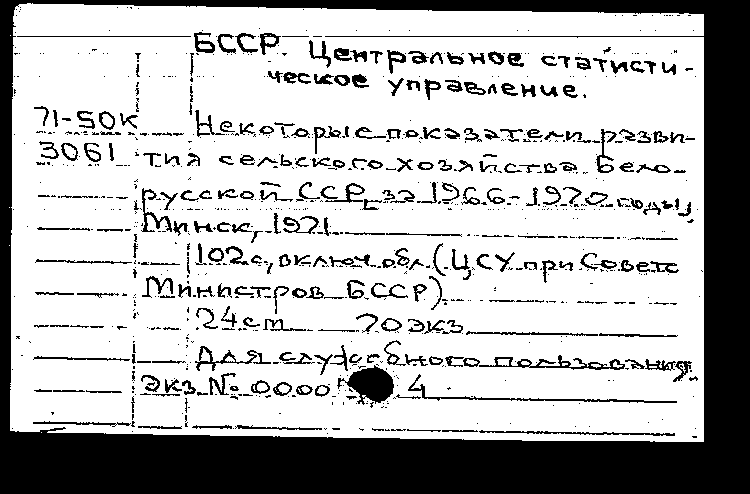 БССР. Центральное статисти-
ческое управление.
71-50к Некоторые показатели разви-
3061 тия сельского хозяйства Бело-
русской ССР за 1966-1970 годы,
Минск, 1971
102с, включ обл (ЦСУ при Совете
Министров БССР)
24см 70экз
Для служебного пользования.
Экз № 0000 4